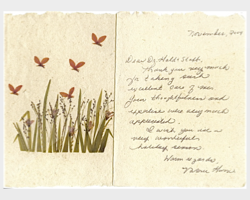 November, 2004
Dear Dr. Held & Staff,
Thank you very much
for taking such
excellent care of me.
Your thoughtfulness and
expertise were very much
appreciated.
I wish you all a
very wonderful
holiday season.
Warm regards,